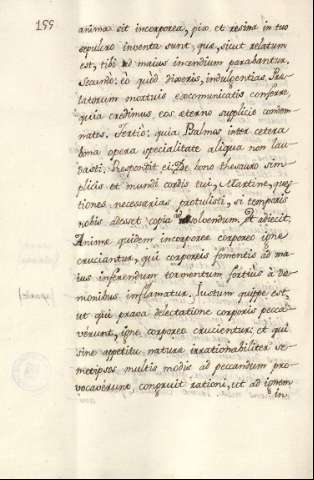 199
anima sit incorporea, pix et resina in tuo
sepulcro inventa sunt, quæ, sicut relatum
est, tibi ad maius incendium parabantur.
Secundo: eo quòd dixeris, indulgentias Præ-
latorum mortuis excomunicatis conferre,
quia credimus, eos æterno supplicio condem-
natos. Tertio: quia Psalmos inter cetera
bona opera specialitate aliqua non lau-
dasti. Respondit ei: De bono thesauro sim-
plicis et mundi cordis tui, Martine, quæs-
tiones necessarias protulisti, si temporis
nobis adesset copia ad solvendum. Et adiecit:
Animæ quidem incorporeæ corporeo igne
cruciantur, qui corporeis fomentis ad ma-
ius inferendum tormentum fortius à Dæ-
monibus inflamatur. Iustum quippe est,
ut qui prava delectatione corporis pecca-
verunt, igne corporeo crucientur: et qui
sine appetitu naturæ irrationabiliter se-
metipsos multis modis ad peccandum pro-
vocaverunt, congruit rationi, ut ad ignem
in